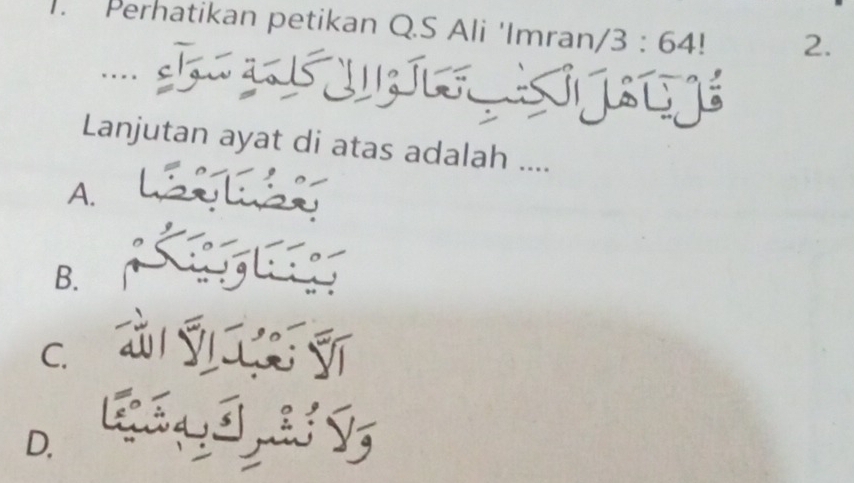 1. Perhatikan petikan Q.S Ali 'Imran/3 : 64!
قُلْ يَٓاَهْلَ الْكِتٰبِ تَعَالَوْا اِلٰى كَلِمَةٍ سَوَاۤءٍ ....
Lanjutan ayat di atas adalah ....
A. بَعْضُنَا بَعْضًا
B. بَيْنَنَا وَبَيْنَكُمْ
C. اَلَّا نَعْبُدَ اِلَّا اللّٰهَ
D. وَلَا نُشْرِكَ بِهٖ شَيْـًٔا
2.